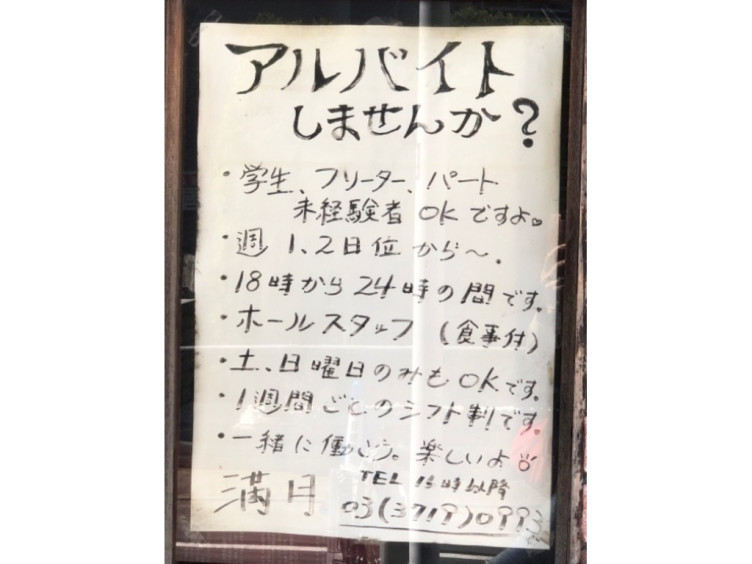 アルバイト
しませんか?
・学生、フリーター、パート
未経験者OKですよ♡
・週1、2日位から〜。
・18時から24時の間です。
・ホールスタッフ(食事付)
・土、日曜日のみもOKです。
・1週間ごとのシフト制です。
・一緒に働こう。楽しいよ
満月
TEL 15時以降
03(3719)0993